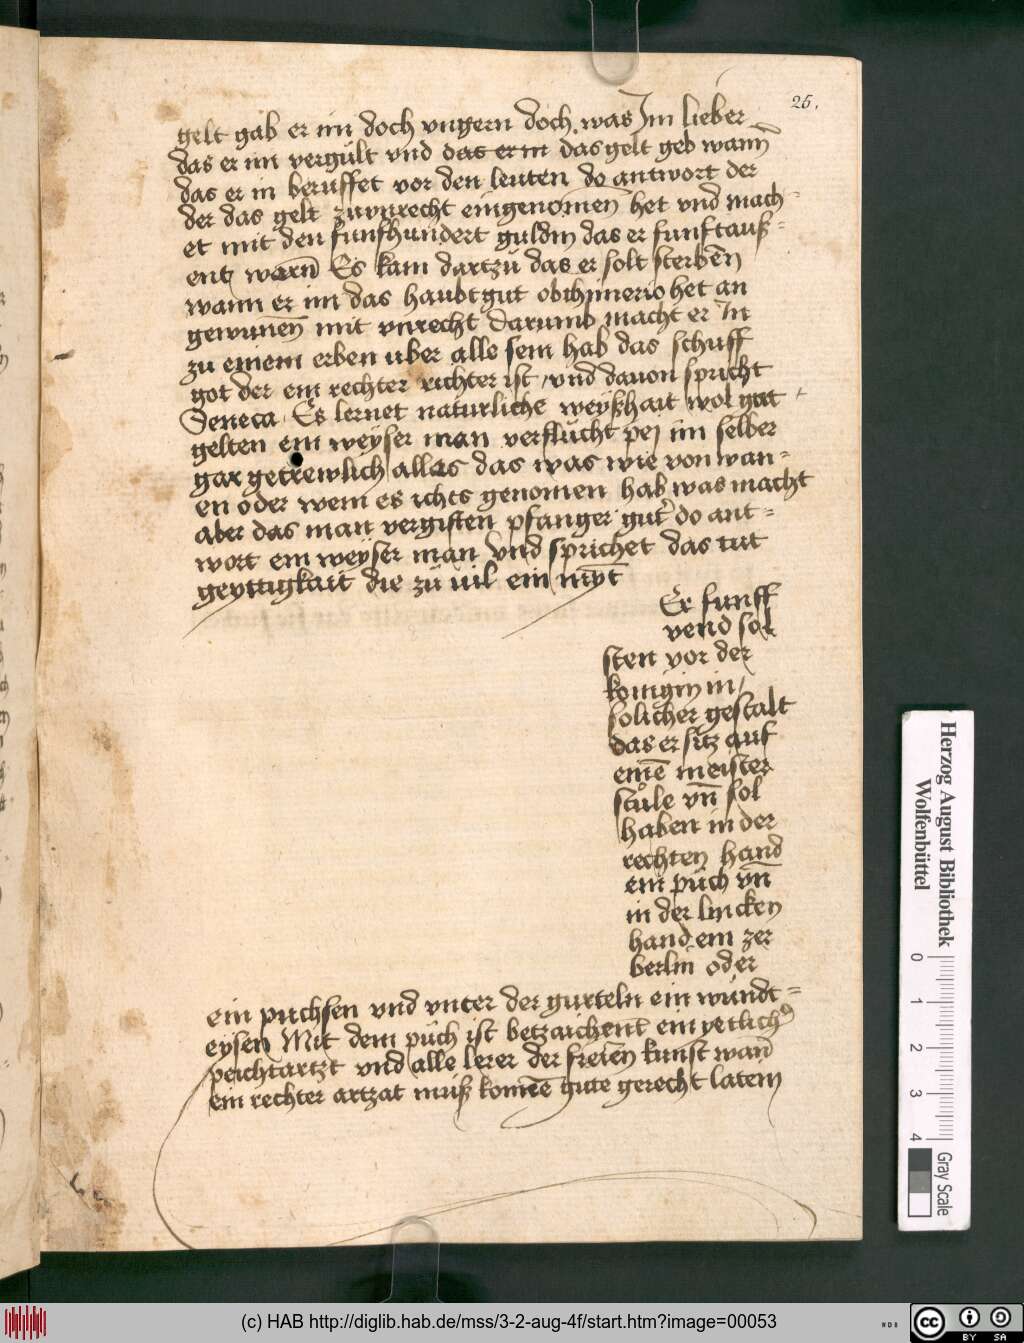 25.
gelt gab er im doch vngern doch was Im lieber
das er im vergult vnd das er im das gelt geb wann
das er in beruffet vor den leuten do antwort der
der das gelt zuvnrecht eingenomen het vnd mach-
et mit den funfhundert guldin das er funftauß=
ent warn Es kam dartzu das er solt sterben
wann er im das haubtgut het an
gewunen mit vnrecht Darumb macht er In
zu einem erben uber alle sein hab das schuff
got der ein rechter richter ist / vnd dauon spricht
Seneca Es lernet naturliche weyßhait wol gut
gelten ein weyser man verflucht pej im selber
gar getrewlich alles das was wie von wan-
en oder wem es ichts genomen hab was macht
aber das man vergiften pfanger gut do ant=
wort ein weyser man vnd sprichet das tut
geyttigkait die zu uil ein nymt
Er funff
vend sol
sten vor der
konigin in /
solicher gestalt
das er sitz auf
eine meister
stule vn sol
haben in der
rechten hand
ein puch vn
in der lincken
hand ein zer
berlin oder
ein puchsen vnd vnter der gurteln ein wundt=
eysen Mit dem puch ist betzaichent ein yetlicher
peichtartzt vnd alle lerer der freien kunst wan
ein rechter artzat muß komen gute gerecht latein
Herzog August Bibliothek
Wolfenbüttel
0 1 2 3 4
Gray Scale
(c) HAB http://diglib.hab.de/mss/3-2-aug-4f/start.htm?image=00053
cc BY SA